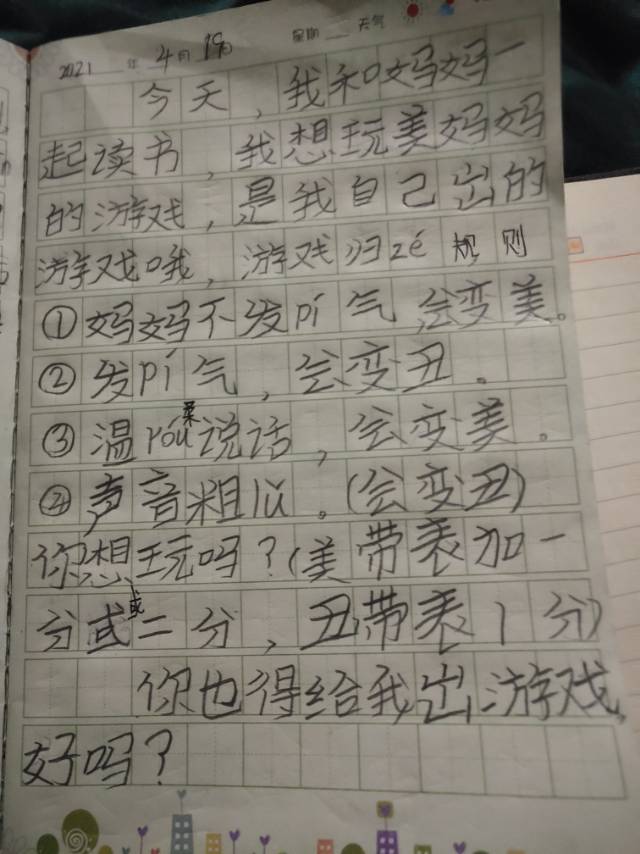 2021年4月19日 星期 天气
今天，我和妈妈一
起读书，我想玩美妈妈
的游戏，是我自己出的
游戏哦，游戏归zé规则
①妈妈不发pí气，会变美。
②发pí气，会变丑。
③温róu柔说话，会变美。
④声音粗lǔ。（会变丑）
你想玩吗？（美带表加一
分或或二分，丑带表1分）
你也得给我出游戏，
好吗？